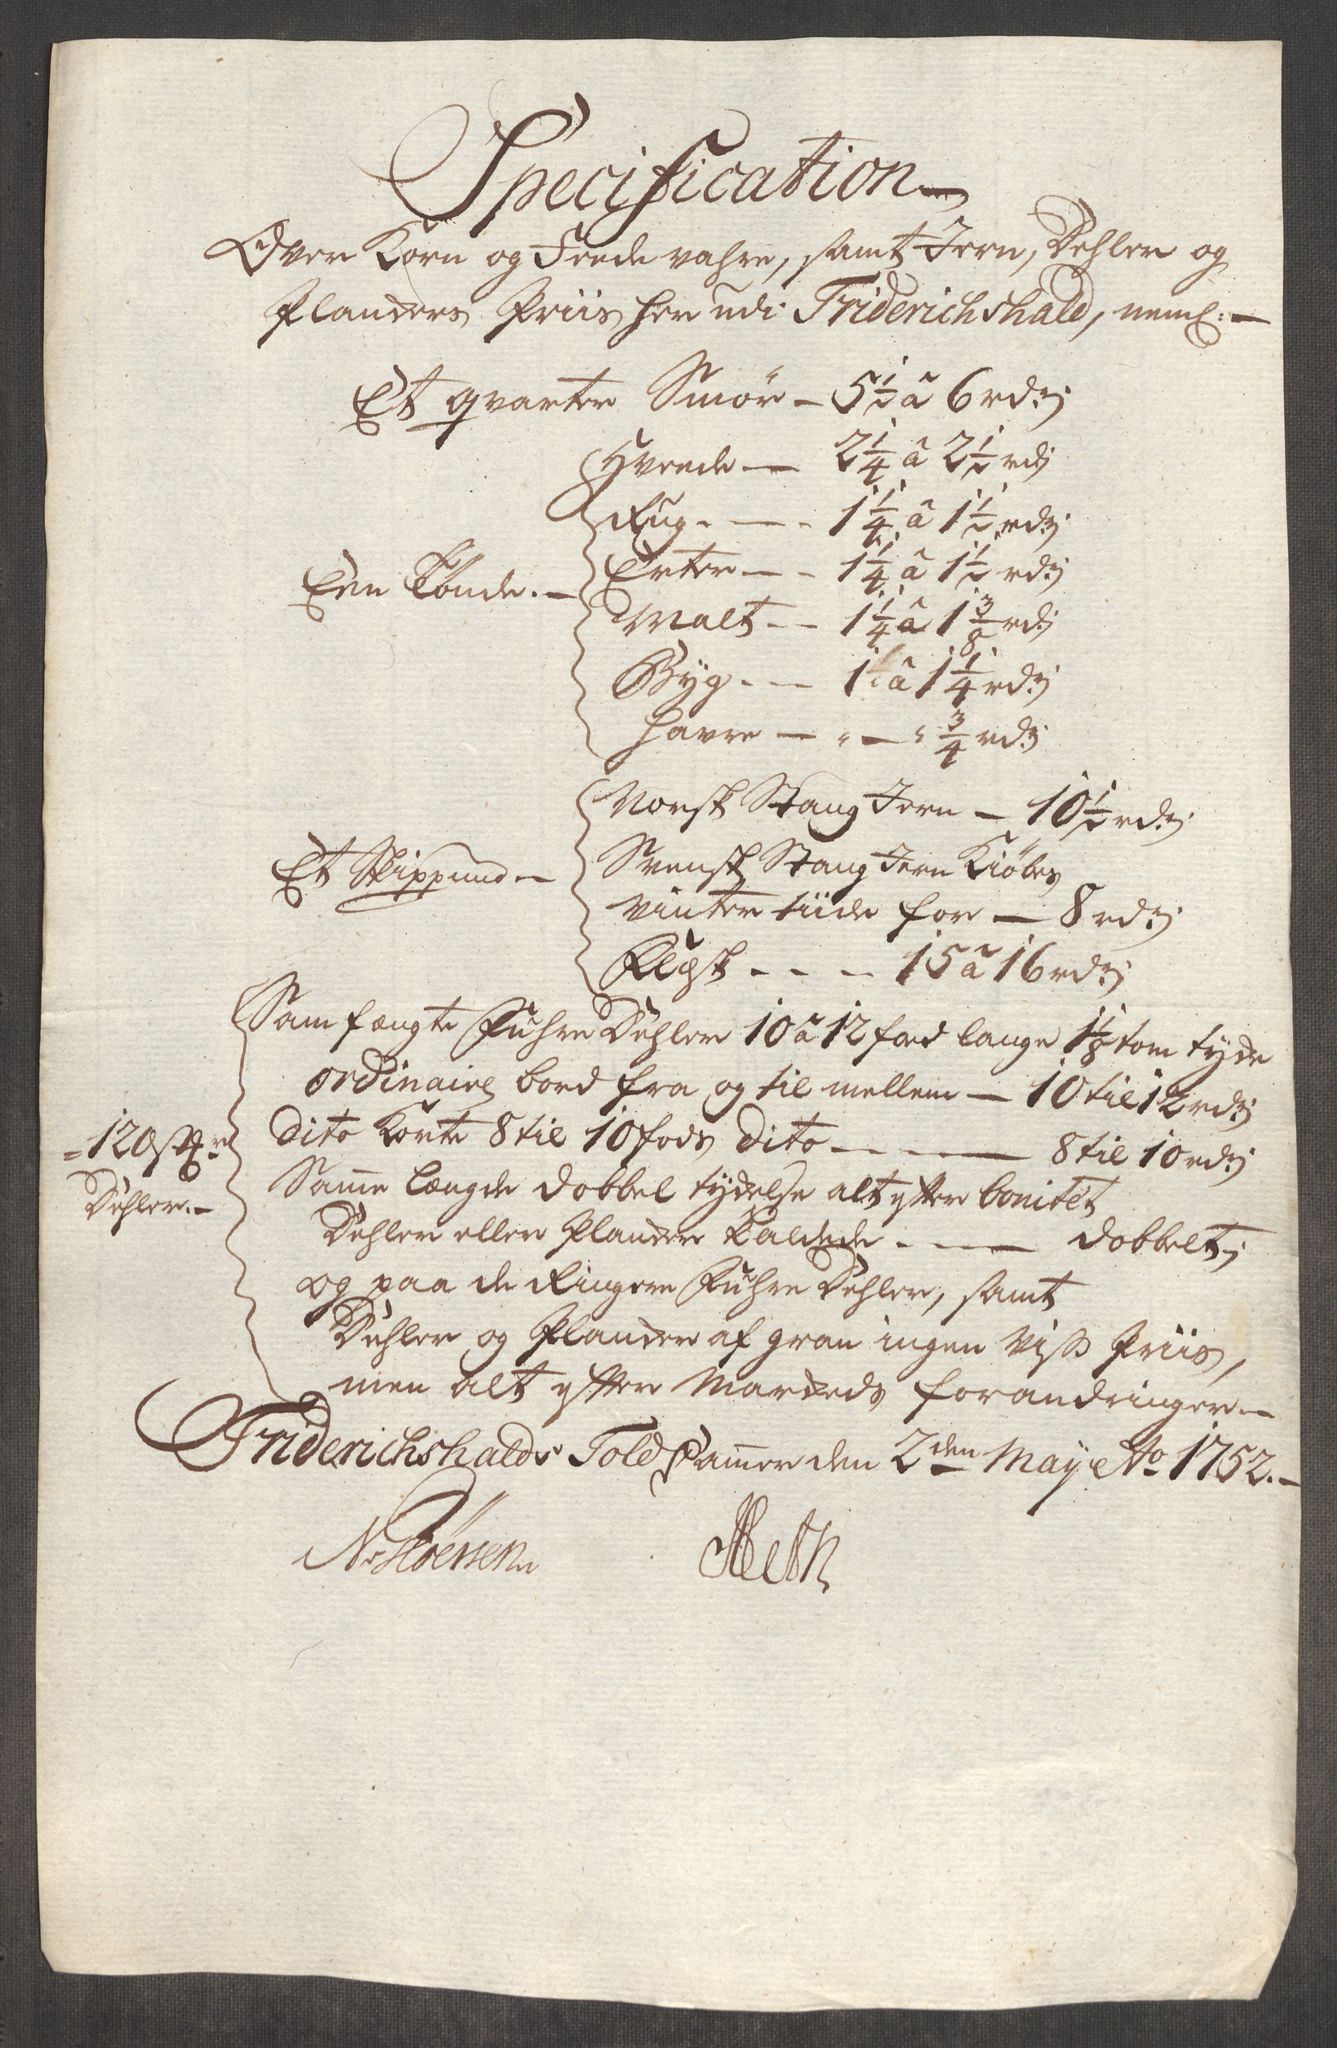 Specification
Over Korn og Feede vahre, samt Jern, Dehler og
Planckers Priis her udi Friderichshald, neml:
Et qvarter Smør — 5 1/2 â 6 rd:
Een Tønde.
Hvede — 2 1/4 â 2 1/2 rd
Rug — 1 1/4 â 1 1/2 rd:
Erter — 1 1/4 â 1 1/2 rd:
Malt — 1 1/4 â 1 3/8 rd:
Byg — 1 â 1 1/4 rd:
Havre — " — " 3/4 rd:
Et Skippund
Norsk Stang Jern — 10 1/2 rd:
Svensk Stang Jern Kiøbes
vinter tiide for — 8 rd:
Flesk — 15 â 16 rd:
120 st
Dehler.
Sam fængte Fuhre Dehler 10 â 12 fod lange 1 1/8 tom tyde
ordinaire bord fra og til mellem — 10 til 12 rd:
dito Korte 8 til 10 fods dito — 8 til 10 rd:
Samme længde dobbel tydelse alt efter bonitet
Dehler eller Plancker kaldede — dobbelt;
og paa de Ringere Fuhre Dehler, samt
Dehler og Plancker af gran ingen viss Priis,
men alt efter Markeds forandringer.
Friderichshalds Told Cammer den 2den May Ao 1752.